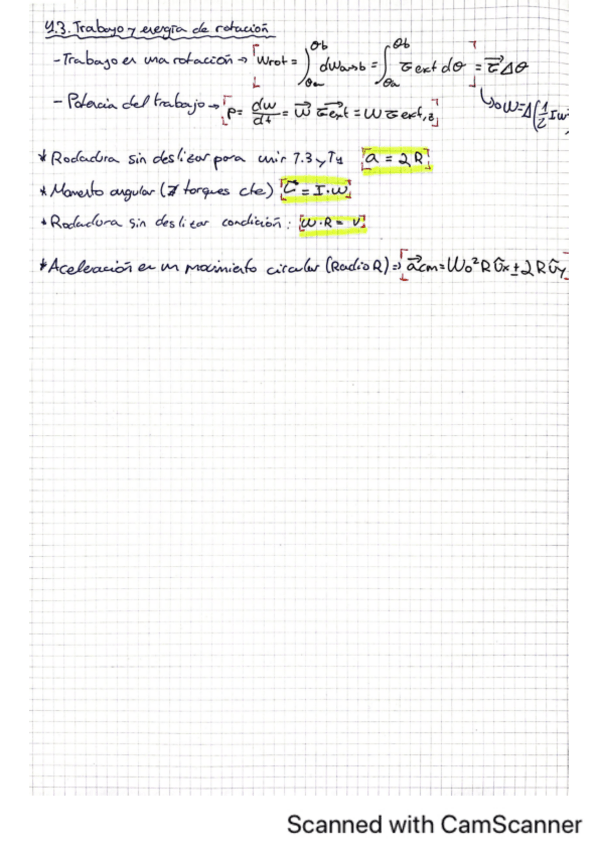 4.3. Trabajo y energía de rotación
- Trabajo en una rotación → Wrot = ∫θa θb dωa→b = ∫θa θb τ ext dθ = τ⃗ Δθ
↳ W = Δ(1/2 Iω
- Potencia del trabajo → P = dw/dt = ω⃗ τ⃗ext = ω τ ext,z
* Rodadura sin deslizar para unir T.3 y T4 a = 2R
* Momento angular (∑ torques cte) L⃗ = I·ω
* Rodadura sin deslizar condición: ω·R = v
* Aceleración en un movimiento circular (Radio R) ⇒ a⃗cm = ω0²R Ûx ± 2R Ûy
Scanned with CamScanner